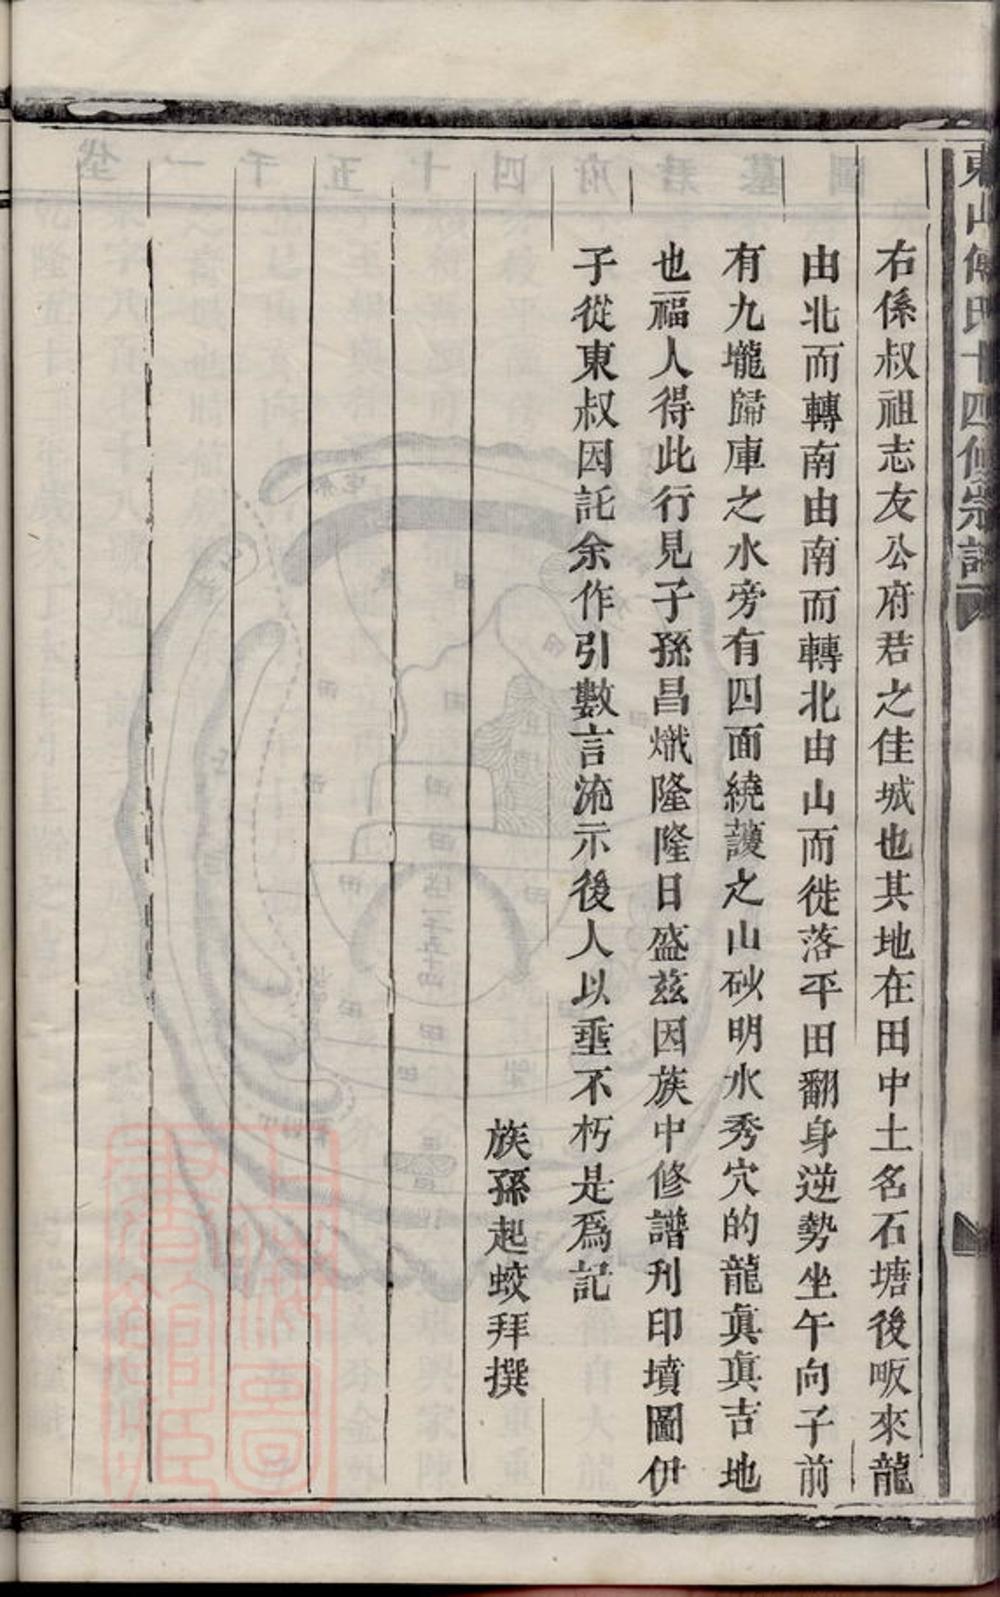 東山傅氏十四修宗譜
右係叔祖志友公府君之佳城也其地在田中土名石塘後畈來龍
由北而轉南由南而轉北由山而徙落平田翻身逆勢坐午向子前
有九壠歸庫之水旁有四面繞護之山砂明水秀穴的龍眞眞吉地
也福人得此行見子孫昌熾隆隆日盛茲因族中修譜刋印墳圖伊
子從東叔因託余作引數言流示後人以垂不朽是爲記
族孫起蛟拜撰